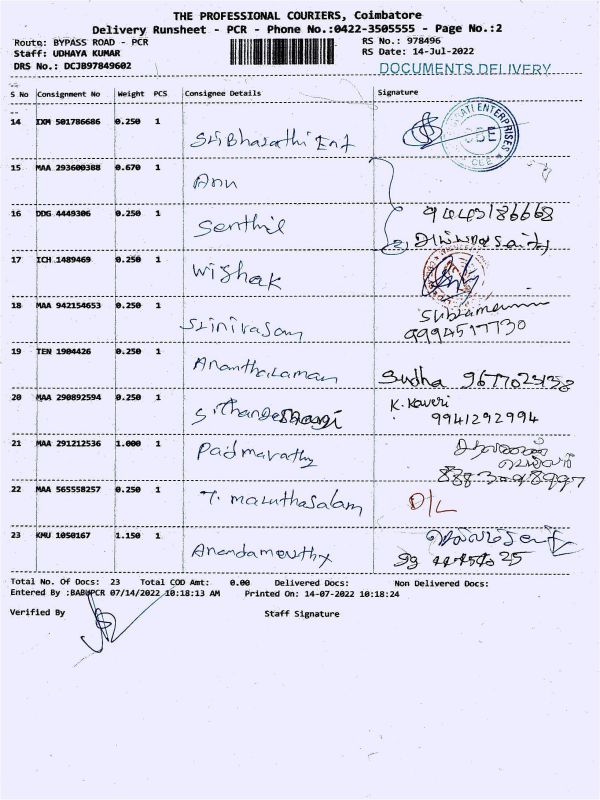 THE PROFESSIONAL COURIERS, Coimbatore
Delivery Runsheet - PCR - Phone No.:0422-3505555 - Page No.:2
Route: BYPASS ROAD - PCR RS No.: 978496
Staff: UDHAYA KUMAR RS Date: 14-Jul-2022
DRS No.: DCJ897849602 DOCUMENTS DELIVERY
S No Consignment No Weight PCS Consignee Details Signature
14 IXM 501786686 0.250 1 Sri Bharathi Ent
15 MAA 293600388 0.670 1 Anu
16 DDG 4449306 0.250 1 Senthil
17 ICH 1489469 0.250 1 Wishak
18 MAA 942154653 0.250 1 Srinivasan Subramani
9994517730
19 TEN 1904426 0.250 1 Anantharaman Sudha
20 MAA 290892594 0.250 1 K. Kaveri
9941292994
21 MAA 291212536 1.000 1 Padmavathy
22 MAA 565558257 0.250 1 T. Maruthasalam D/L
23 KMU 1050167 1.150 1 Anandamurthy
Total No. Of Docs: 23 Total COD Amt: 0.00 Delivered Docs: Non Delivered Docs:
Entered By :BABUPCR 07/14/2022 10:18:13 AM Printed On: 14-07-2022 10:18:24
Verified By Staff Signature